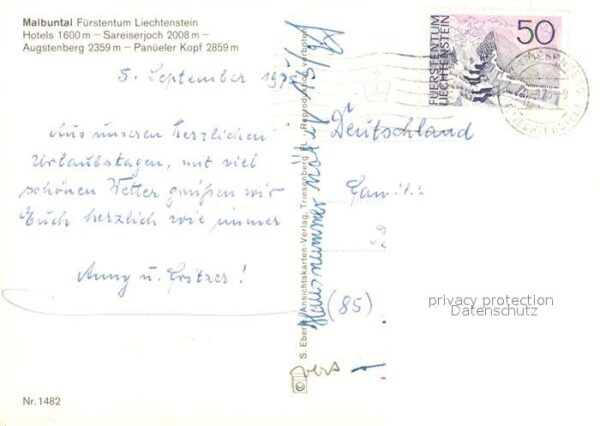 Malbuntal Fürstentum Liechtenstein
Hotels 1600 m – Sareiserjoch 2008 m –
Augstenberg 2359 m – Panüeler Kopf 2859 m
5. September
Aus unseren herzlichen
Urlaubstagen, mit viel
schönen Wetter grüßen wir
Euch herzlich wie immer
Anny u. Fritzer!
Nr. 1482
© S. Eberle, Ansichtskarten-Verlag, Triesenberg FL. Reproduktion verboten
Hausnummer
FUERSTENTUM
LIECHTENSTEIN
50
Deutschland
Famili
(85)
privacy protection
Datenschutz